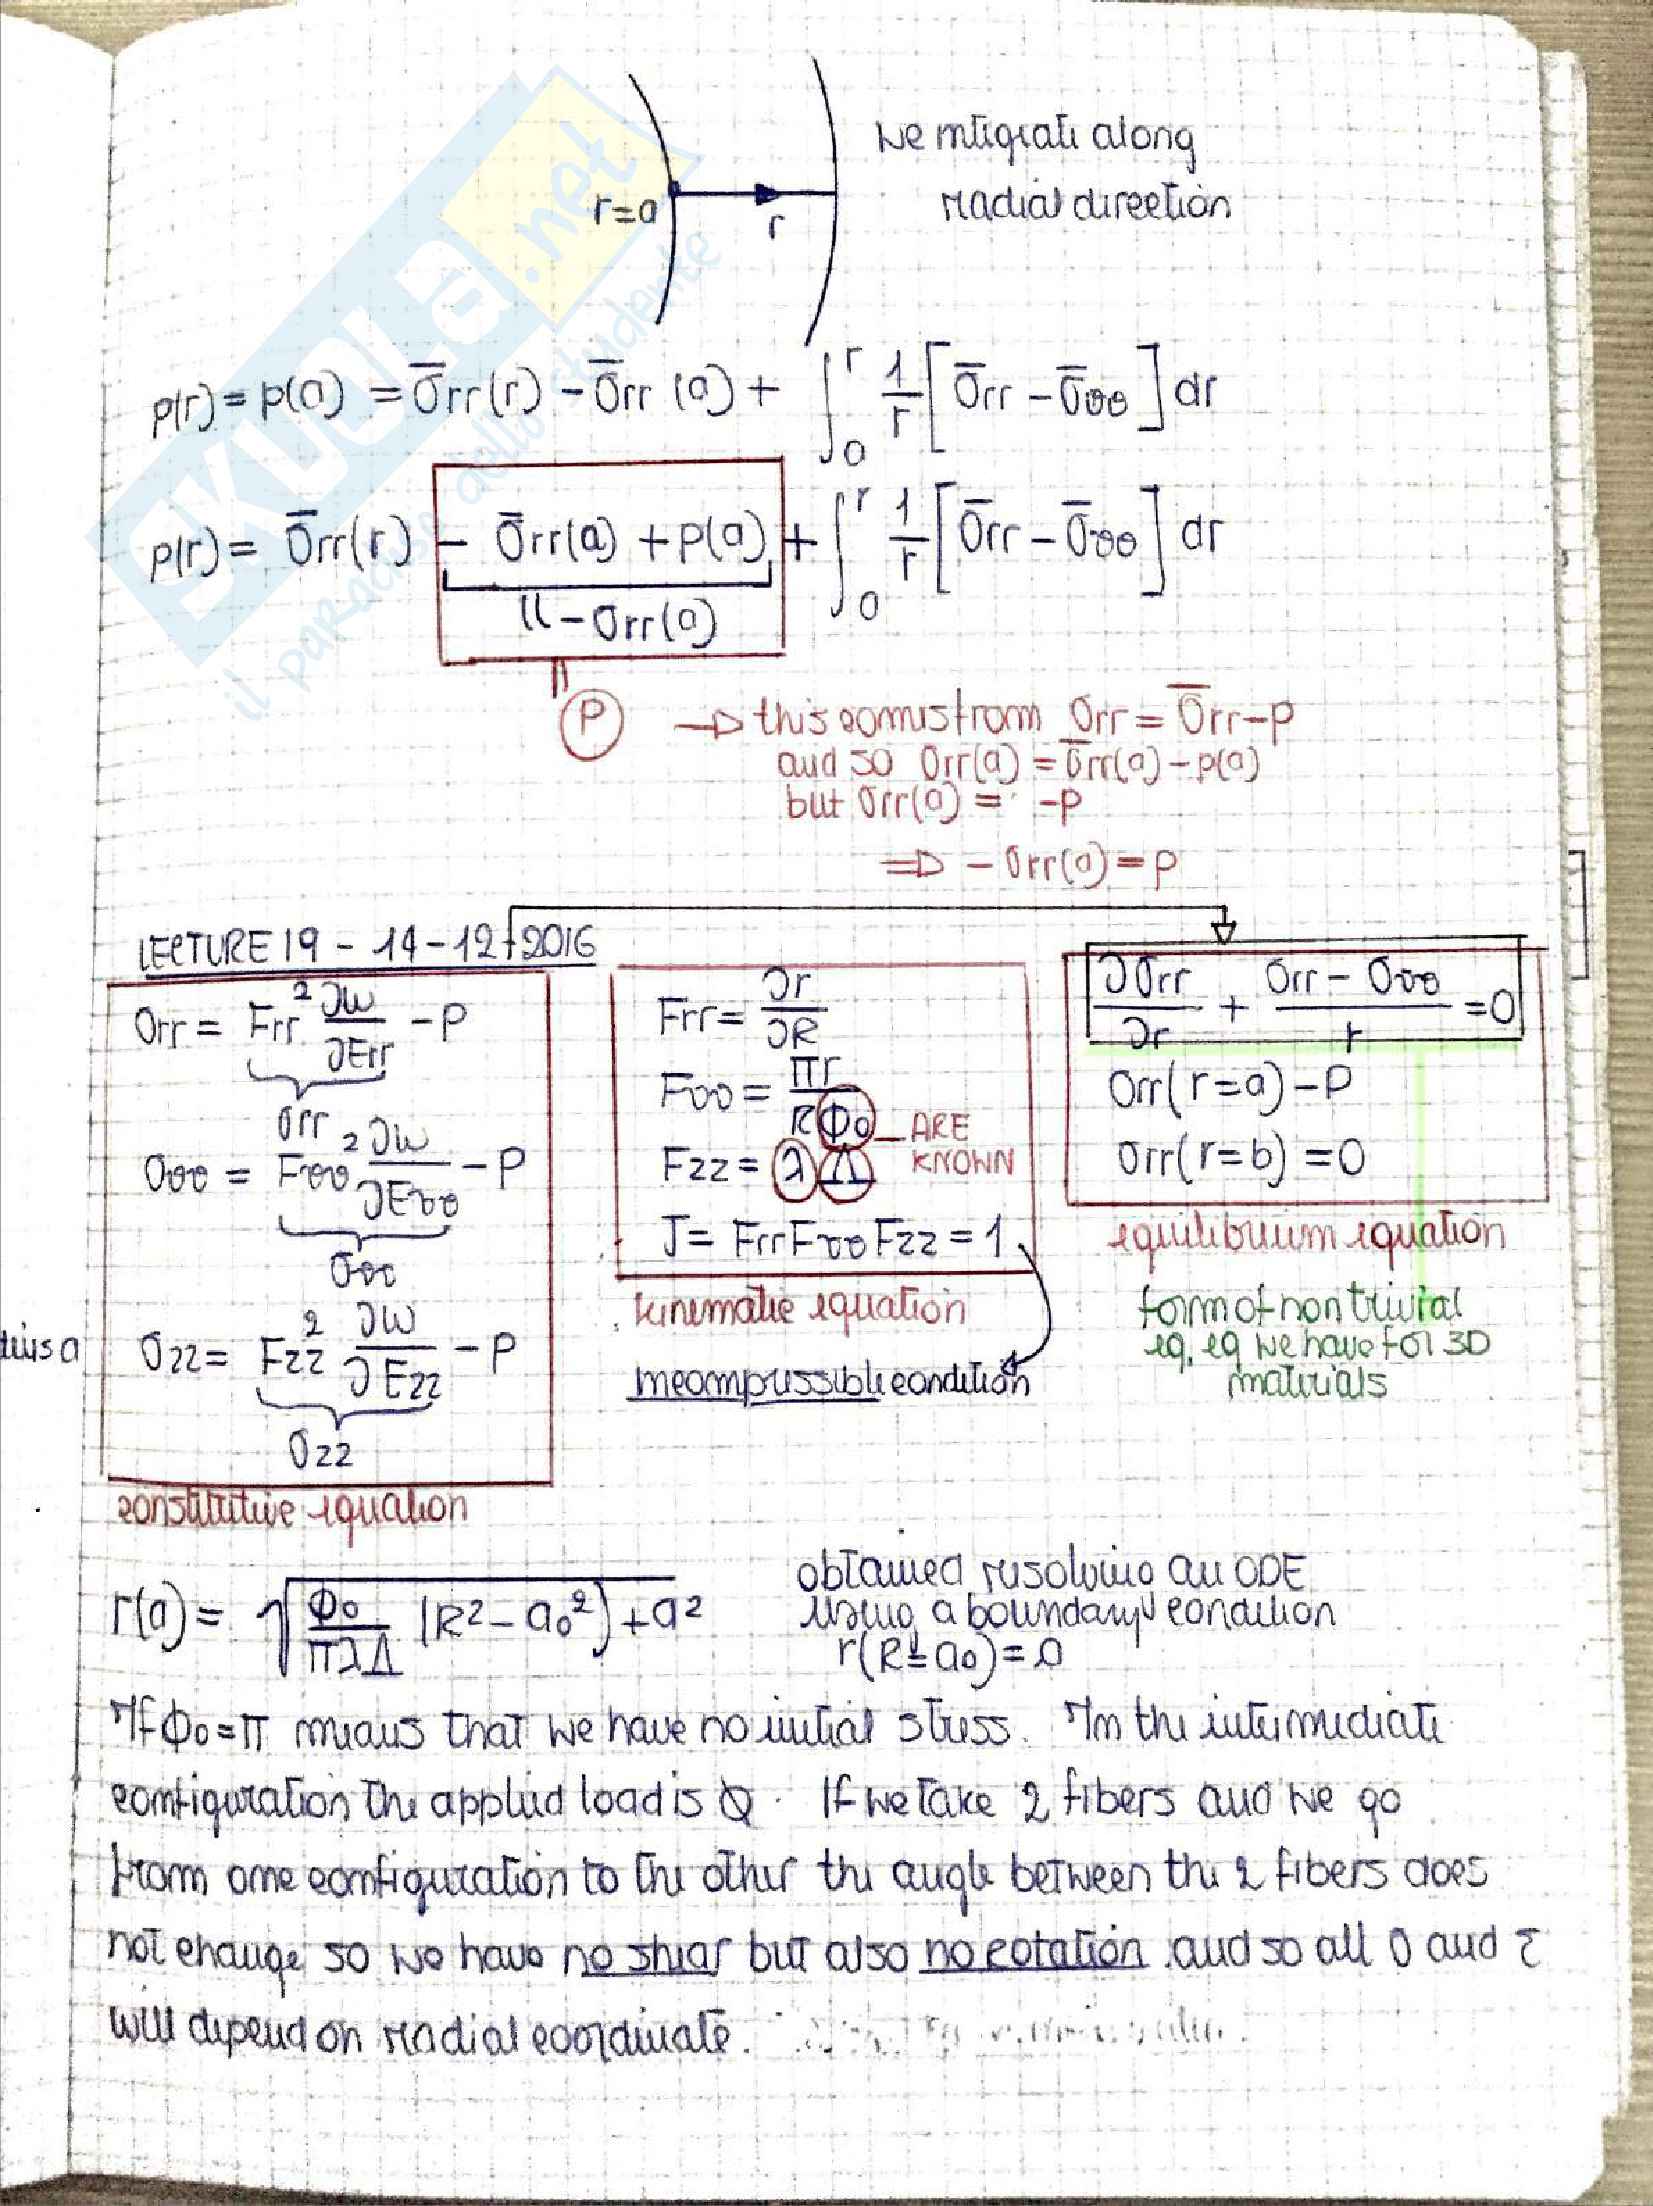 SKUOLA.net
il paradiso dello studente
We integrate along
radial direction
r=a
r
p(r) = p(a) = σ̅rr(r) - σ̅rr (a) + ∫ₐʳ 1/r [σ̅rr - σ̅θθ] dr
p(r) = σ̅rr(r) - σ̅rr(a) + p(a) + ∫ₐʳ 1/r [σ̅rr - σ̅θθ] dr
-σrr(a)
P → this comes from σrr = σ̅rr-p
and so σrr(a) = σ̅rr(a) - p(a)
but σrr(a) = -p
⇒ -σrr(a) = p
LECTURE 19 - 14-12-2016
σrr = Frr² ∂W/∂Err - P
σrr
σθθ = Fθθ² ∂W/∂Eθθ - P
σθθ
σzz = Fzz² ∂W/∂Ezz - P
σzz
constitutive equation
Frr = ∂r/∂R
Fθθ = πr/RΦ₀
ARE
KNOWN
Fzz = λ Λ
J = Frr Fθθ Fzz = 1
kinematic equation
incompressible condition
∂σrr/∂r + σrr - σθθ/r = 0
σrr(r=a) - P
σrr(r=b) = 0
equilibrium equation
form of non trivial
eq. eq we have for 3D
materials
dius a
r(a) = √(Φ₀/πλΛ (R² - a₀²) + a²)
obtained resolving an ODE
using a boundary condition
r(R=a₀) = a
If Φ₀=π means that we have no initial stress. In the intermediate
configuration the applied load is 0. If we take 2 fibers and we go
from one configuration to the other the angle between the 2 fibers does
not change so we have no shear but also no rotation and so all σ and ε
will depend on radial coordinate.